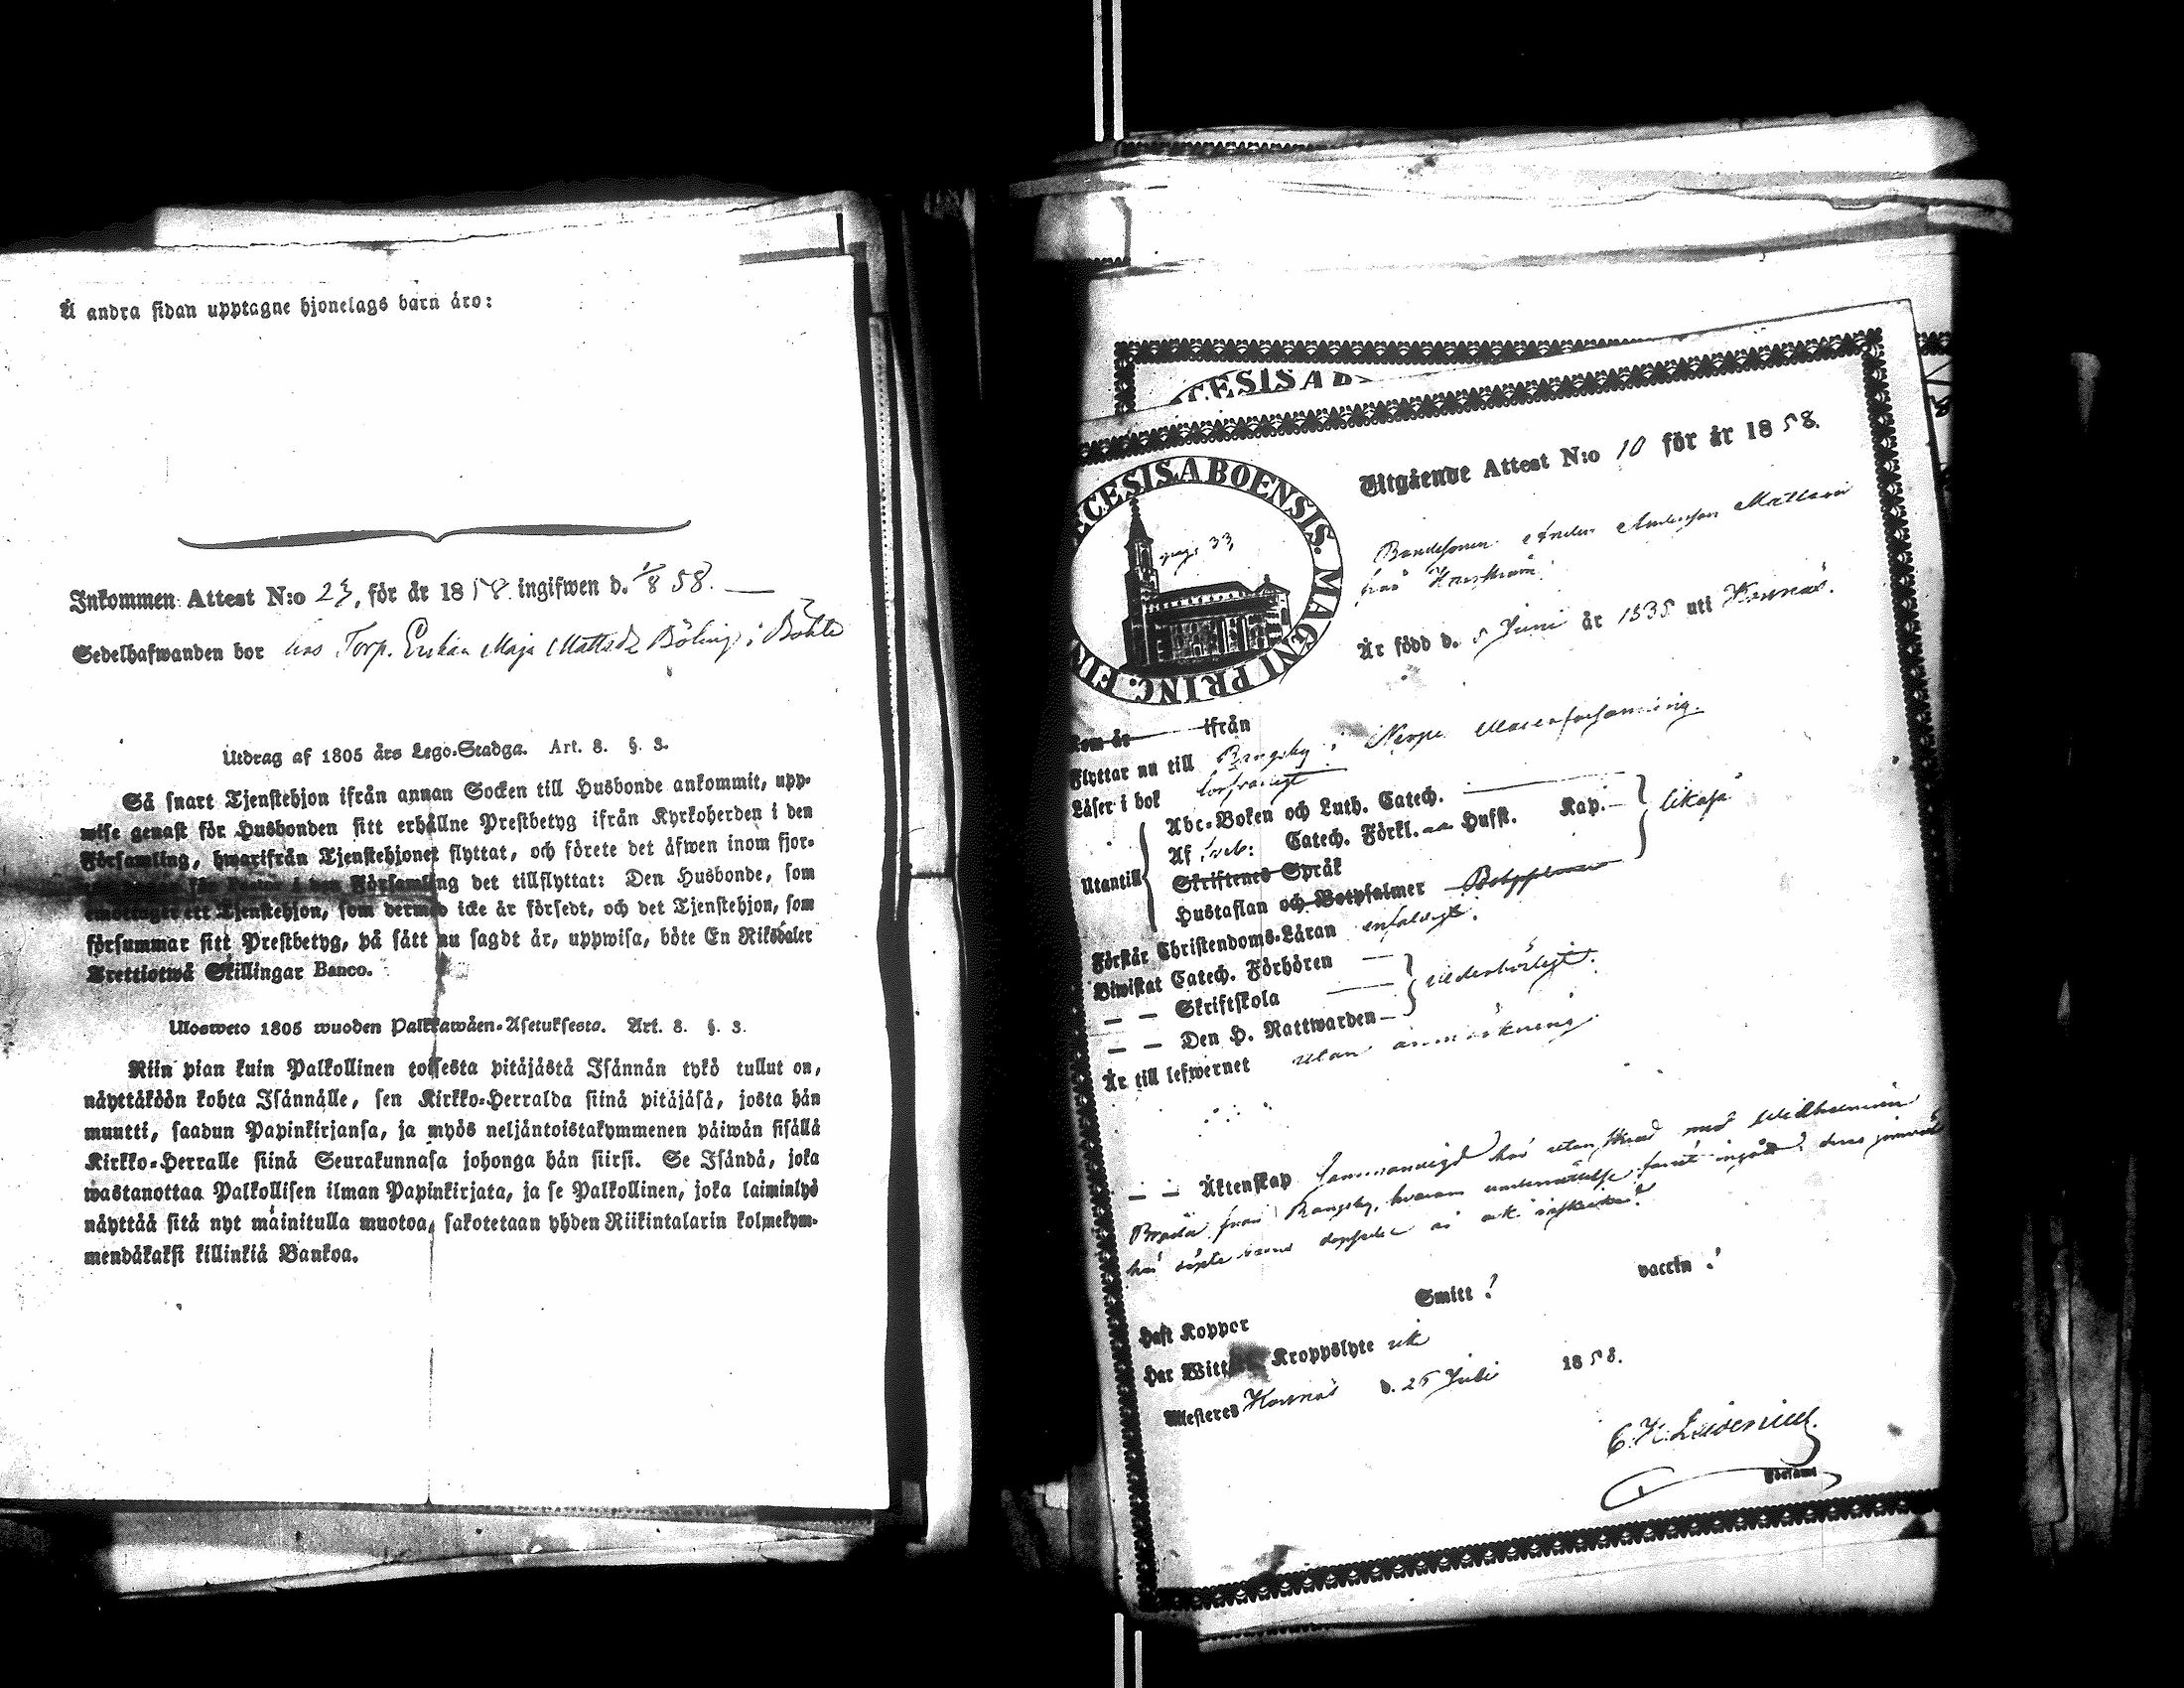 Å andra sidan upptagne hjonelags barn äro:
Inkommen Attest N:o 23, för år 1858 ingifwen d. 1/8 58. —
Sedelhafwanden bor hos Torp. Enkan Maja Mattsdr Böling i Böhle
Utdrag af 1805 års Lego-Stadga. Art. 8. §. 3.
Så snart Tjenstehjon ifrån annan Socken till Husbonde ankommit, upp-
wise genast för Husbonden sitt erhållne Prestbetyg ifrån Kyrkoherden i den
Församling, hwarifrån Tjenstehjonet flyttat, och förete det äfwen inom fjor-
för Pastor i den Församling det tillflyttat: Den Husbonde, som
emottager ett Tjenstehjon, som dermed icke är försedt, och det Tjenstehjon, som
försummar sitt Prestbetyg, på sätt nu sagdt är, uppwisa, böte En Riksdaler
Trettiotwå Skillingar Banco.
Ulosweto 1805 wuoden Palkkawäen-Asetuksesta. Art. 8. §. 3.
Niin pian kuin Palkollinen toisesta pitäjästä Isännän tykö tullut on,
näyttäköön kohta Isännälle, sen Kirkko-Herralda siinä pitäjäsä, josta hän
muutti, saadun Papinkirjansa, ja myös neljäntoistakymmenen päiwän sisällä
Kirkko-Herralle siinä Seurakunnasa johonga hän siirsi. Se Isändä, joka
wastanottaa Palkollisen ilman Papinkirjata, ja se Palkollinen, joka laiminlyö
näyttää sitä nyt mainitulla muotoa, sakotetaan yhden Riikintalarin kolmekym-
mendäkaksi killinkiä Bankoa.
CESIS AB
CESIS ABOENSIS. MAGNI PRINC. FIN
pag. 33,
Utgående Attest N:o 10 för år 1858.
Bondesonen Anders Andersson Mattson
från
Är född d. 5 Juni år 1838 uti Korsnäs.
Kom år — ifrån
Flyttar nu till Rangsby i Nerpes Moderförsamling.
Läser i bok försvarligt
Utantill
Abc-Boken och Luth. Catech.
Af Sveb: Catech. Förkl. Husst. Kap. — likaså
Skriftenes Språk
Hustaflan och Botpsalmer
Förstår Christendoms-Läran enfaldigt.
Biwistat Catech. Förhören —
— — Skriftskola — vederbörligt.
— — Den H. Nattwarden —
Är till lefwernet utan anmärkning.
— — Äktenskap
från Rangsby, hvarom underrättelse
Haft Koppor Smitt ? vaccin ?
Har Witt Kroppslyte ick
Attesteres Korsnäs d. 26 Juli 1858.